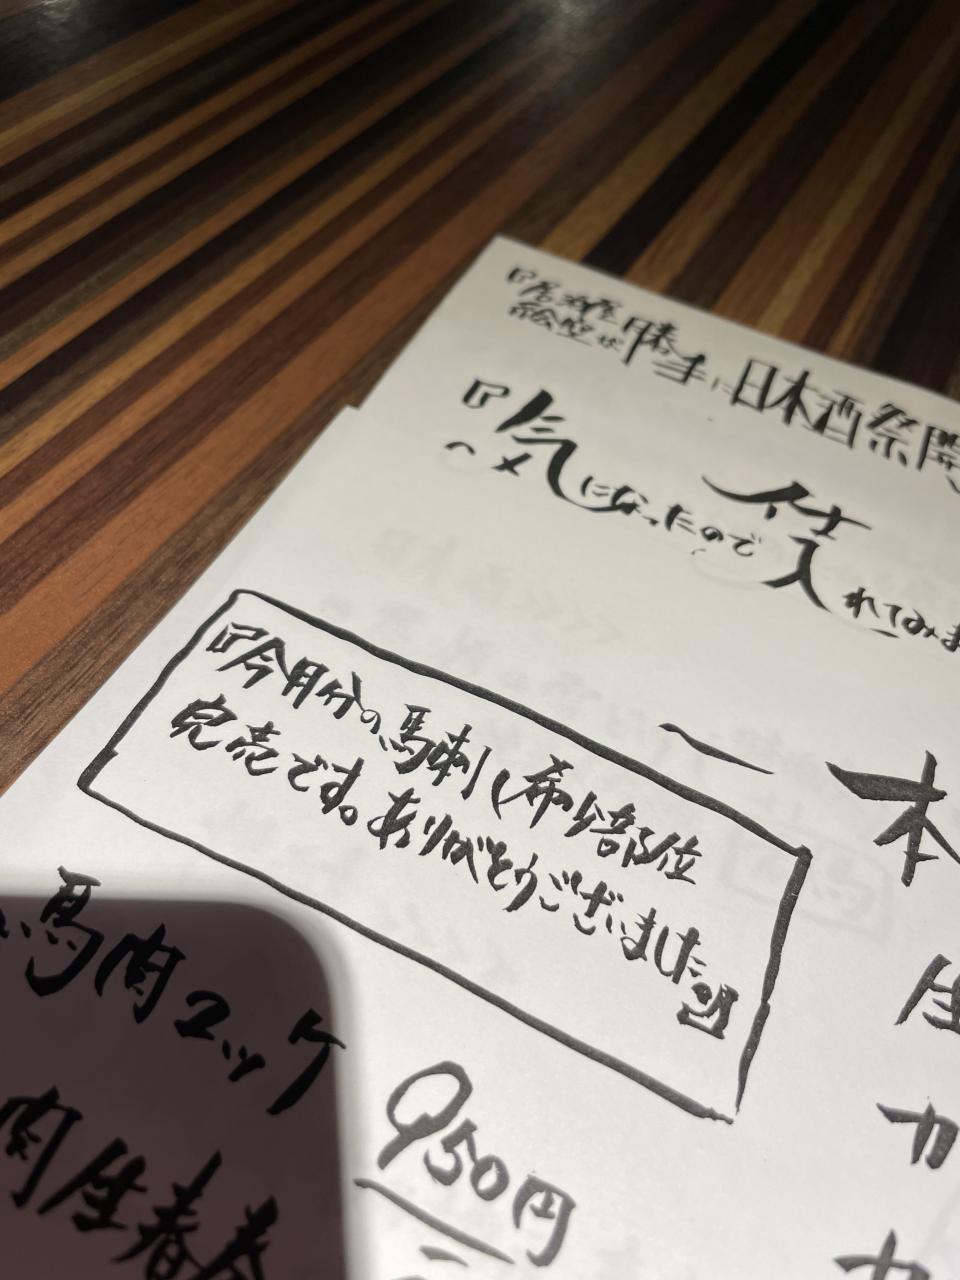 『居酒屋
絵空事
勝手に日本酒祭開
『気になったので仕入れてみま
『今月分の馬刺し希少部位
完売です。ありがとうございました』
馬肉ユッケ
950円
肉生春巻
本
生
カ